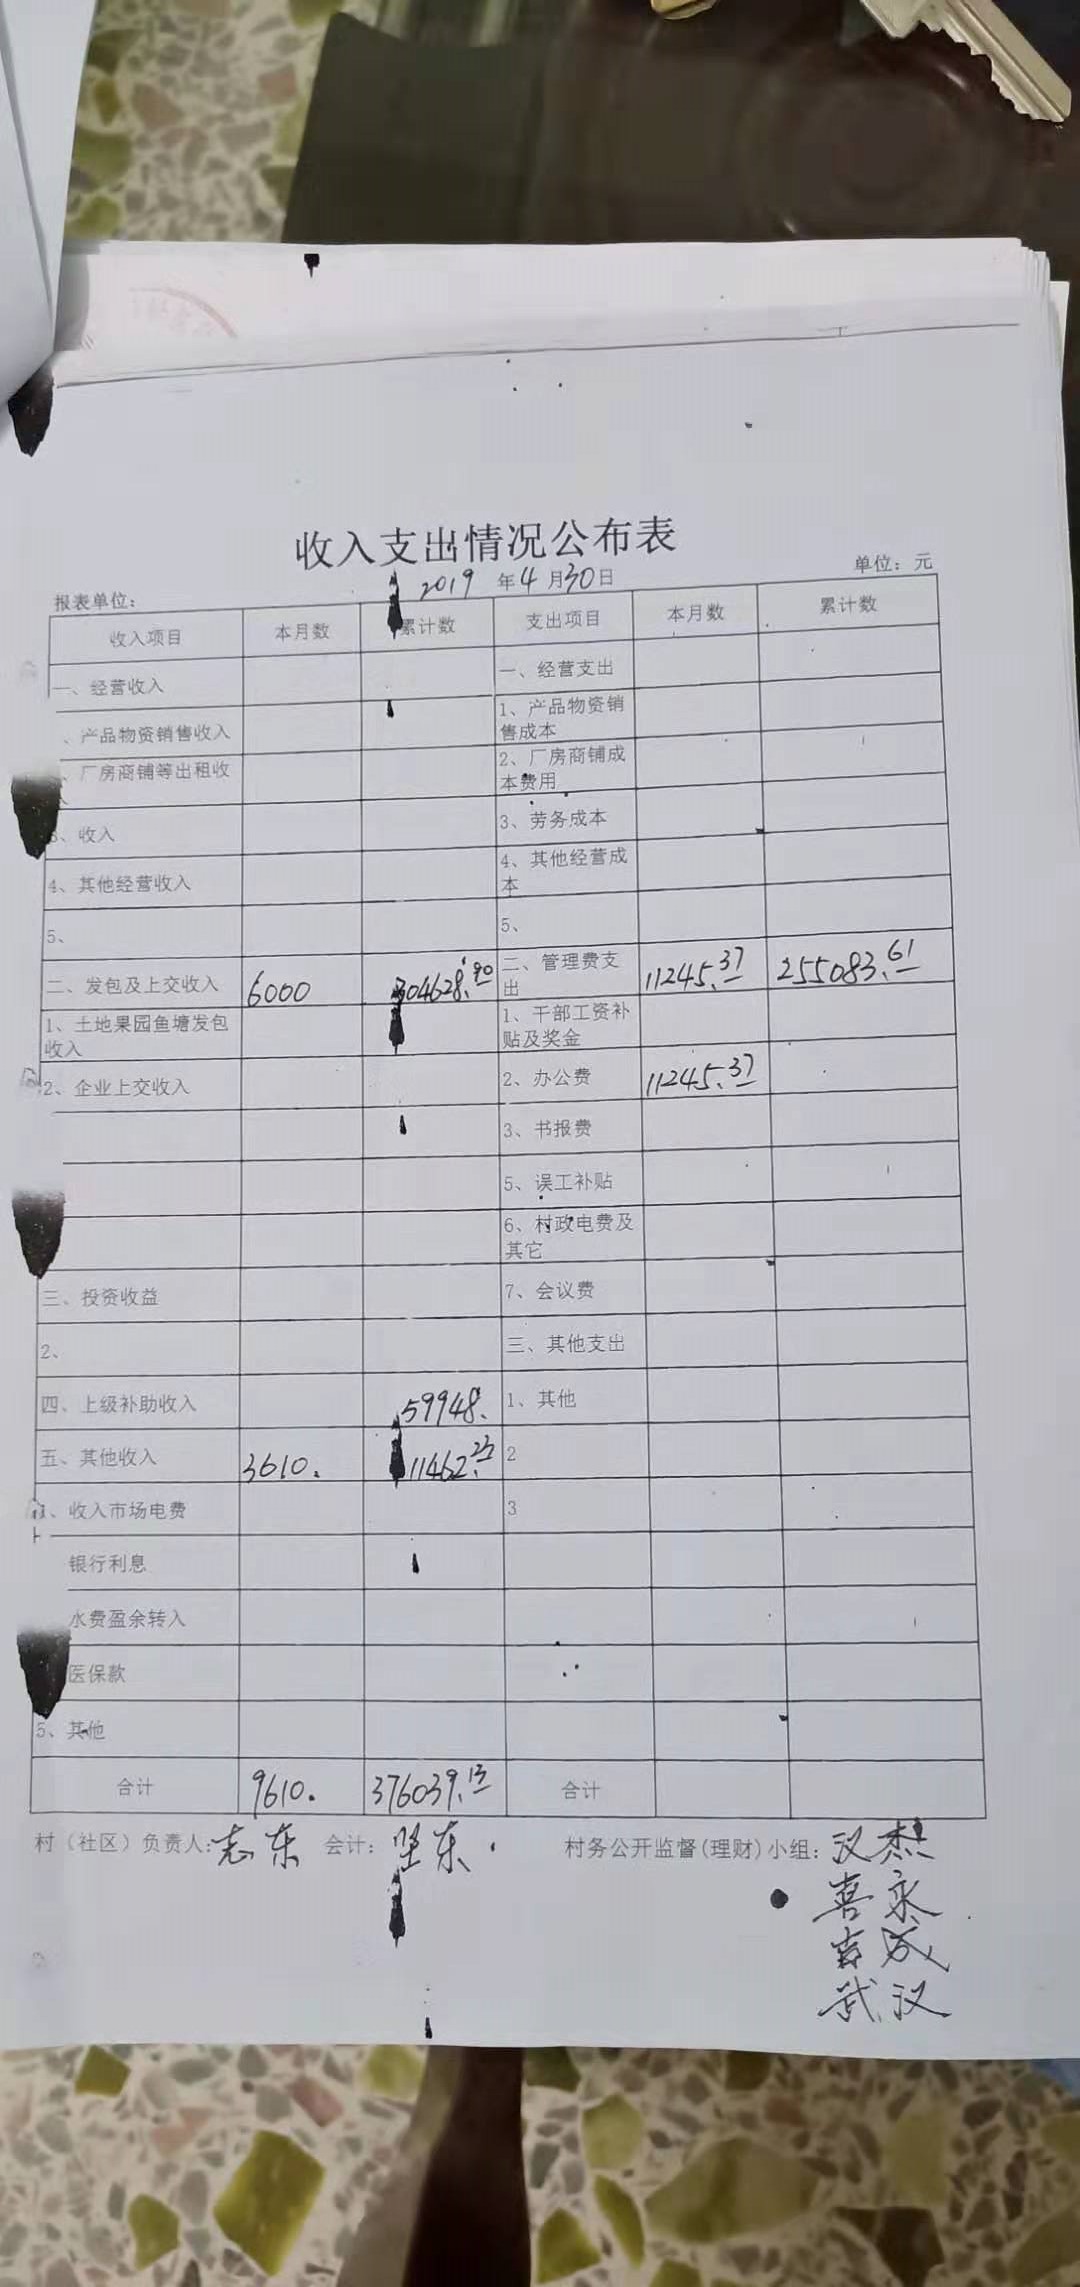 收入支出情况公布表
2019 年 4 月 30 日
报表单位:
单位: 元
收入项目 本月数 累计数 支出项目 本月数 累计数
一、经营收入 一、经营支出
、产品物资销售收入 1、产品物资销售成本
、厂房商铺等出租收 2、厂房商铺成本费用
、收入 3、劳务成本
4、其他经营收入 4、其他经营成本
5、 5、
二、发包及上交收入 6000 304628.90 二、管理费支出 11245.37 255083.61
1、土地果园鱼塘发包收入 1、干部工资补贴及奖金
2、企业上交收入 2、办公费 11245.37
3、书报费
5、误工补贴
6、村政电费及其它
三、投资收益 7、会议费
2、 三、其他支出
四、上级补助收入 59948. 1、其他
五、其他收入 3610. 11462.23 2
、收入市场电费 3
银行利息
水费盈余转入
医保款
5、其他
合计 9610. 376039.13 合计
村（社区）负责人: 志东 会计: 坚东. 村务公开监督(理财)小组: 汉杰
喜永
吉成
武汉